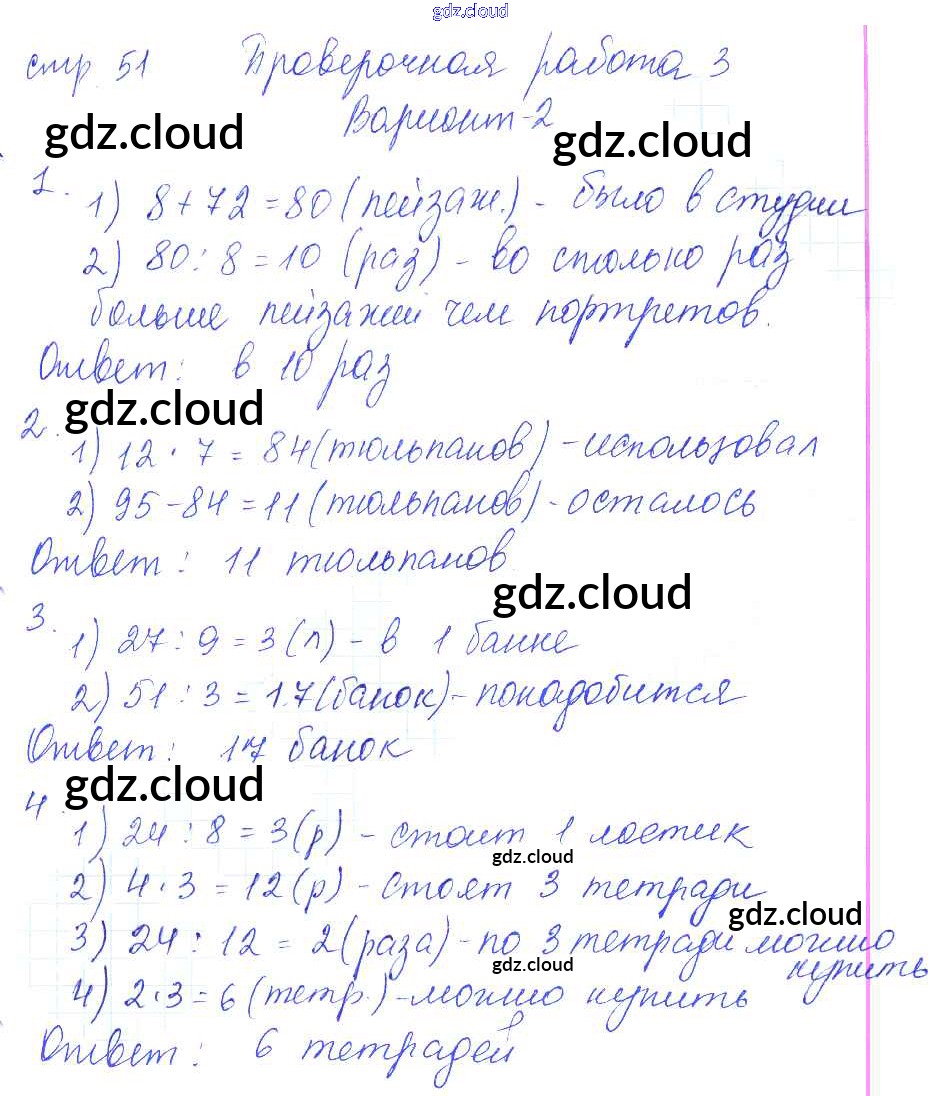 gdz.cloud
стр. 51 Проверочная работа 3
Вариант-2
gdz.cloud gdz.cloud
1. 1) 8+72=80 (пейзаж.) - было в студии
2) 80:8=10 (раз) - во столько раз
больше пейзажей чем портретов.
Ответ: в 10 раз
gdz.cloud
2. 1) 12·7=84 (тюльпанов) - использовал
2) 95-84=11 (тюльпанов) - осталось
Ответ: 11 тюльпанов
gdz.cloud
3. 1) 27:9=3 (л) - в 1 банке
2) 51:3=17 (банок) - понадобится
Ответ: 17 банок
gdz.cloud
4. 1) 24:8=3 (р) - стоит 1 ластик
gdz.cloud
2) 4·3=12 (р) - стоят 3 тетради
gdz.cloud
3) 24:12=2 (раза) - по 3 тетради можно
купить
gdz.cloud
4) 2·3=6 (тетр.) - можно купить
Ответ: 6 тетрадей